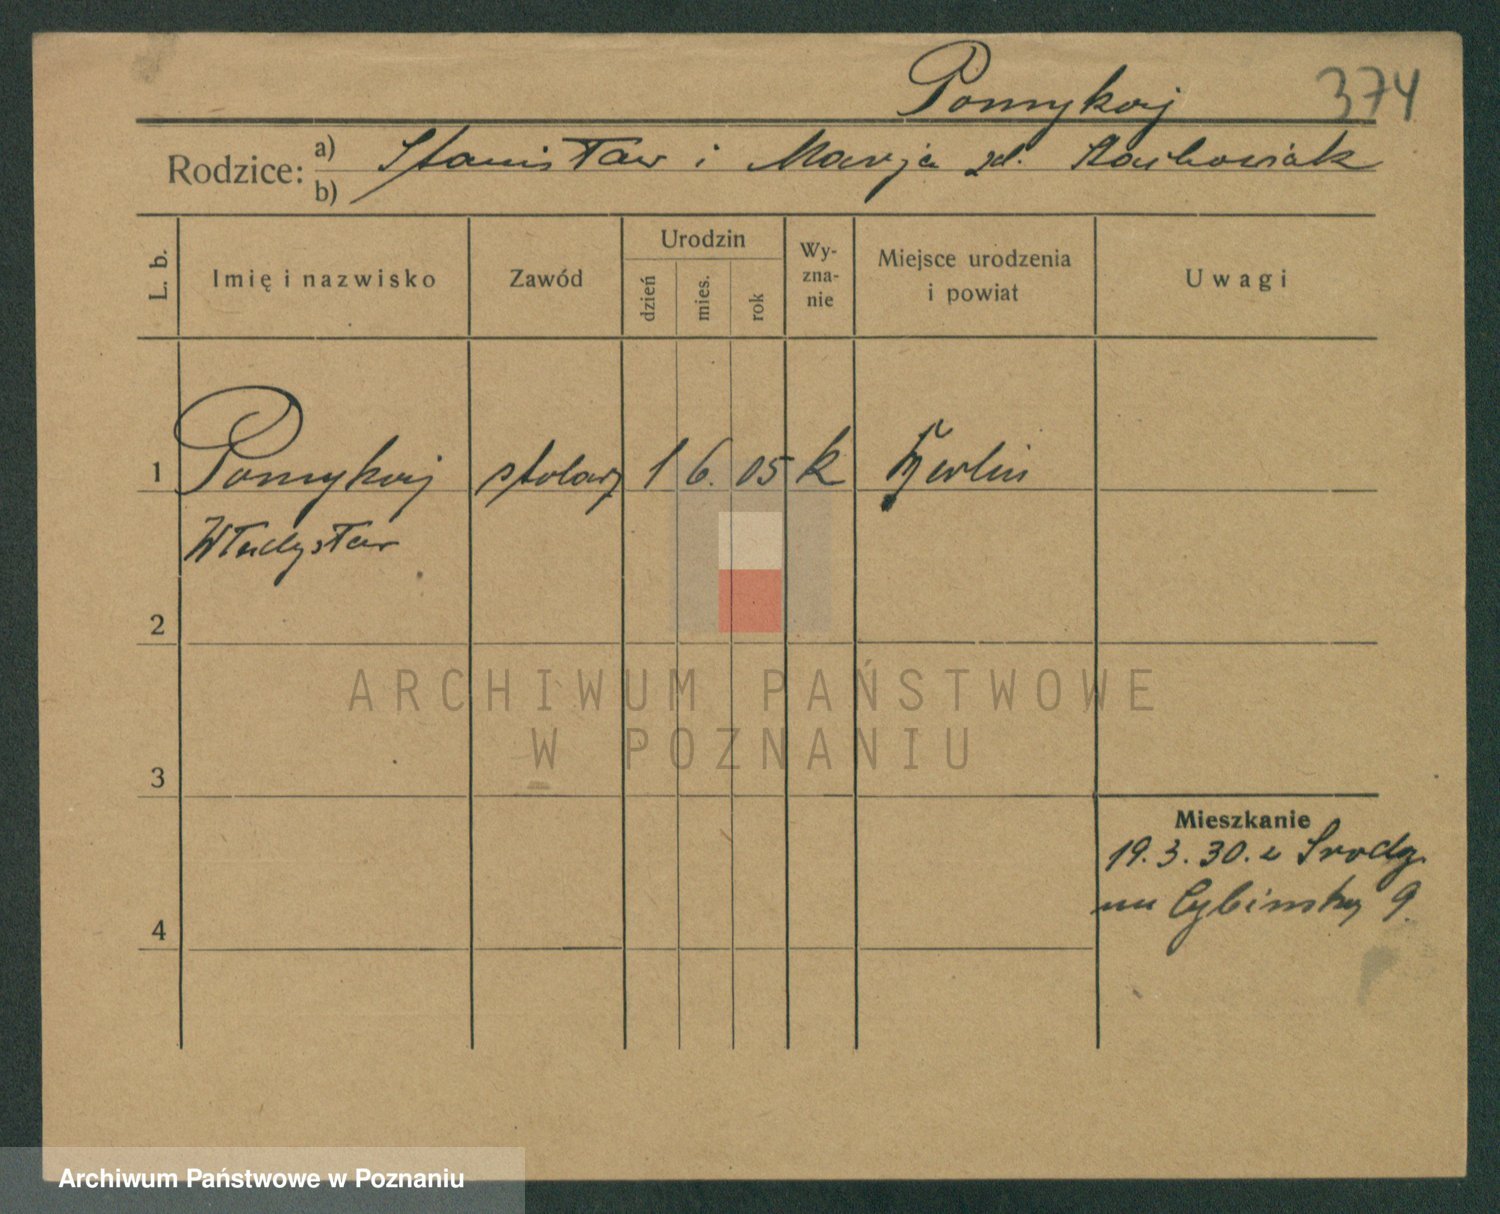 Pomykaj 374
Rodzice: a) Stanisław i Marja zd.
b)
L. b. Imię i nazwisko Zawód Urodzin dzień mies. rok Wy-zna-nie Miejsce urodzenia i powiat Uwagi
1 Pomykaj stolarz 1 6. 05 k Berlin
Władysław
2
ARCHIWUM PAŃSTWOWE
W POZNANIU
3
Mieszkanie
19. 3. 30. z Środy
na Cybińską 9.
4
Archiwum Państwowe w Poznaniu